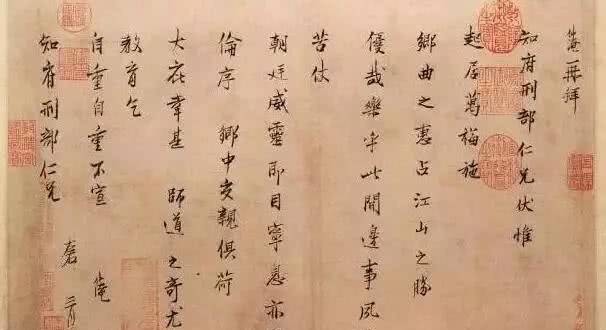 淹再拜
知府刑部仁兄伏惟
起居萬福施
鄉曲之惠占江山之勝
優哉樂乎此間邊事夙
苦仗
朝廷威靈即目寧息亦
倫序 鄉中交親俱荷
大庇幸甚 師道之奇尤
教育乞
自重自重不宣
淹
知府刑部仁兄
三月